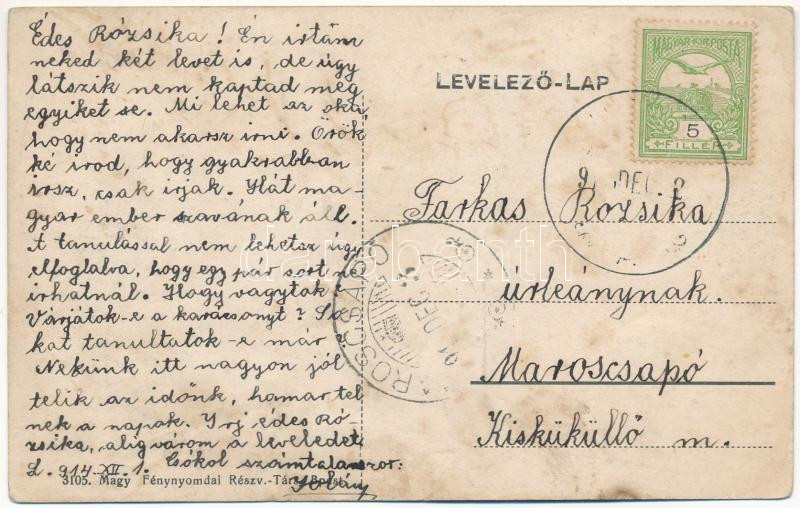 Édes Rózsika! Én írtam
neked két levet is, de úgy
látszik nem kaptad meg
egyiket se. Mi lehet az oka,
hogy nem akarsz irni. Örök
ké irod, hogy gyakrabban
irsz, csak irjak. Hát ma-
gyar ember szavának áll.
A tanulással nem lehetsz úgy
elfoglalva, hogy egy pár sort ne
irhatnál. Hogy vagytok?
Várjátok-e a karácsonyt? So-
kat tanultatok-e már
Nekünk itt nagyon jól
telik az időnk, hamar tel
nek a napok. Irj édes Ró-
zsika, alig várom a leveledet
L. 914. XII. 1. Csókol számtalanszor:
3105. Magy Fénynyomdai Részv.-Társ. Bpest
LEVELEZŐ-LAP
MAGYAR KIR. POSTA
5
FILLÉR
DEC
Farkas Rozsika
úrleánynak.
Maroscsapó
Kisküküllő m.
DEC
darabanth